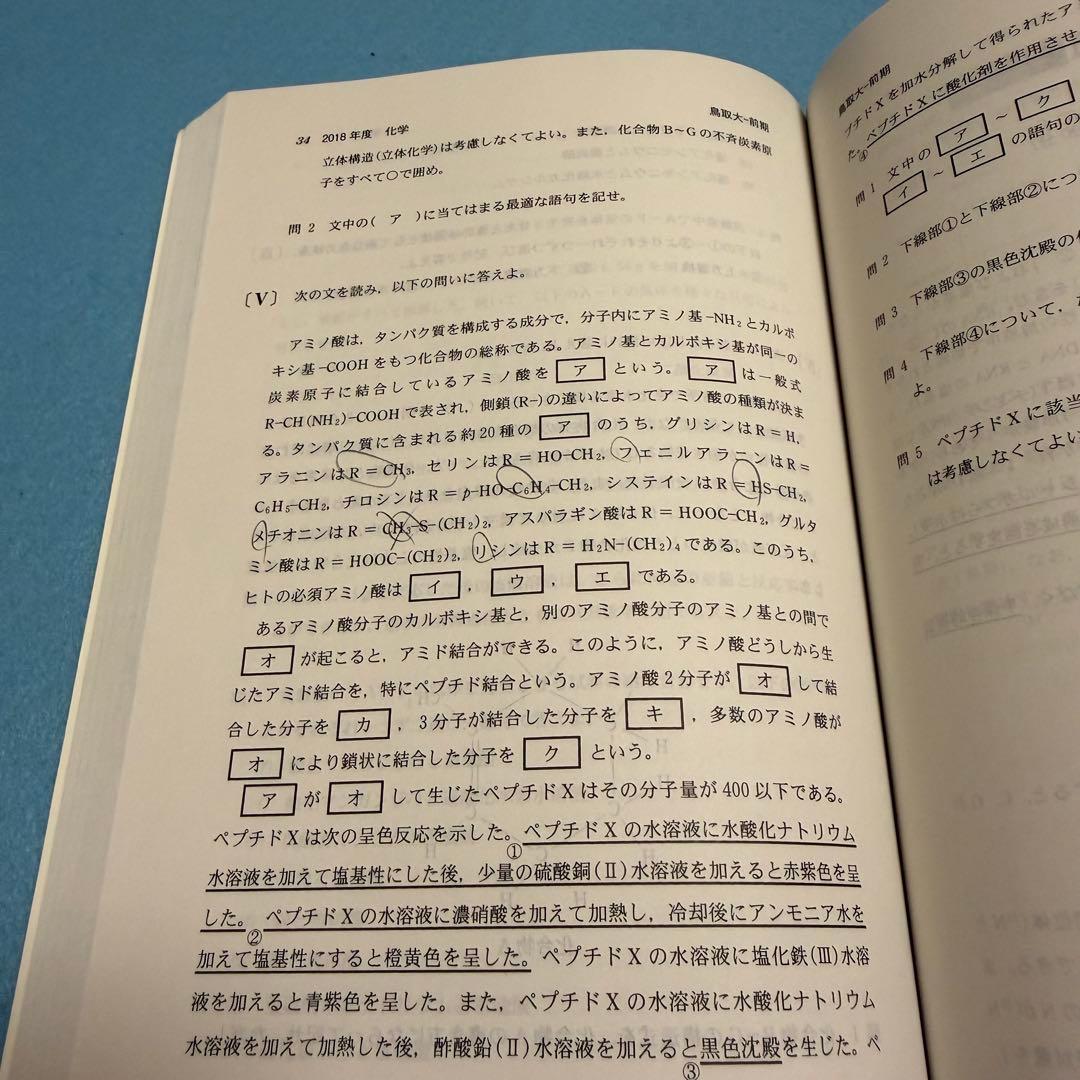 34 2018年度 化学
鳥取大-前期
立体構造(立体化学)は考慮しなくてよい。また，化合物B～Gの不斉炭素原
子をすべて○で囲め。
問2 文中の( ア )に当てはまる最適な語句を記せ。
〔V〕 次の文を読み，以下の問いに答えよ。
アミノ酸は，タンパク質を構成する成分で，分子内にアミノ基-NH2とカルボ
キシ基-COOHをもつ化合物の総称である。アミノ基とカルボキシ基が同一の
炭素原子に結合しているアミノ酸を ア という。 ア は一般式
R-CH(NH2)-COOHで表され，側鎖(R-)の違いによってアミノ酸の種類が決ま
る。タンパク質に含まれる約20種の ア のうち，グリシンはR＝H，
アラニンはR＝CH3，セリンはR＝HO-CH2，フェニルアラニンはR＝
C6H5-CH2，チロシンはR＝p-HO-C6H4-CH2，システインはR＝HS-CH2，
メチオニンはR＝CH3-S-(CH2)2，アスパラギン酸はR＝HOOC-CH2，グルタ
ミン酸はR＝HOOC-(CH2)2，リシンはR＝H2N-(CH2)4である。このうち，
ヒトの必須アミノ酸は イ ， ウ ， エ である。
あるアミノ酸分子のカルボキシ基と，別のアミノ酸分子のアミノ基との間で
オ が起こると，アミド結合ができる。このように，アミノ酸どうしから生
じたアミド結合を，特にペプチド結合という。アミノ酸2分子が オ して結
合した分子を カ ，3分子が結合した分子を キ ，多数のアミノ酸が
オ により鎖状に結合した分子を ク という。
ア が オ して生じたペプチドXはその分子量が400以下である。
ペプチドXは次の呈色反応を示した。ペプチドXの水溶液に水酸化ナトリウム
①
水溶液を加えて塩基性にした後，少量の硫酸銅(II)水溶液を加えると赤紫色を呈
した。ペプチドXの水溶液に濃硝酸を加えて加熱し，冷却後にアンモニア水を
②
加えて塩基性にすると橙黄色を呈した。ペプチドXの水溶液に塩化鉄(III)水溶
液を加えると青紫色を呈した。また，ペプチドXの水溶液に水酸化ナトリウム
水溶液を加えて加熱した後，酢酸鉛(II)水溶液を加えると黒色沈殿を生じた。ペ
③
鳥取大-前期
プチドXを加水分解して得られたア
た。ペプチドXに酸化剤を作用させ
④
問1 文中の ア ～ ク
イ ～ エ の語句の
問2 下線部①と下線部②につ
問3 下線部③の黒色沈殿の
問4 下線部④について，
よ。
問5 ペプチドXに該当
は考慮しなくてよい